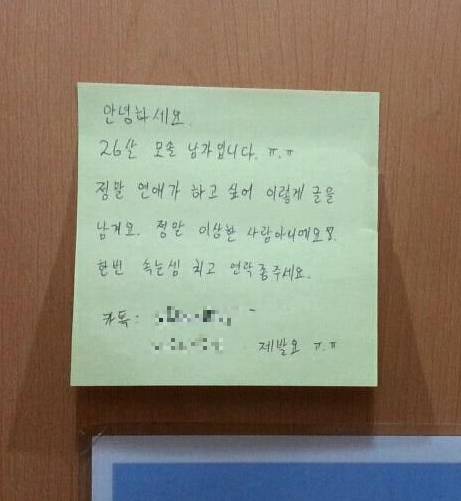 안녕하세요.
26살 모솔 남자입니다. ㅠ.ㅠ
정말 연애가 하고 싶어 이렇게 글을
남겨요. 정말 이상한 사람아니예요!
한번 속는셈 치고 연락좀주세요.
카톡:
제발요 ㅠ.ㅠ